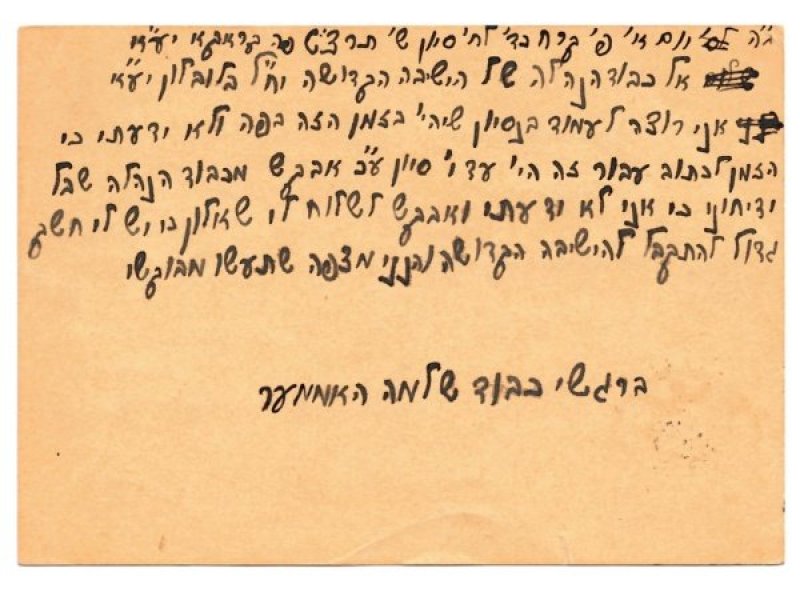 ב"ה יום א' פ' קרח כד' לח' סיון ש' תרצ"ט פה קראקא יע"א
אל כבוד הנהלה של הישיבה הקדושה יח"ל בלובלין יע"א
אני רוצה לעמוד בנסיון שיהי' בזמן הזה בפה ולא ידעתי כי
הזמן לכתוב עבור זה הי' עד י' סיון ע"כ אבקש מכבוד הנהלה שבל
ידיחוני כי אני לא ידעתי ואבקש לשלוח לי שאלון כי יש לי חשק
גדול להתקבל להישיבה הקדושה והנני מצפה שתעשו מבוקשי
ברגשי כבוד שלמה האממער